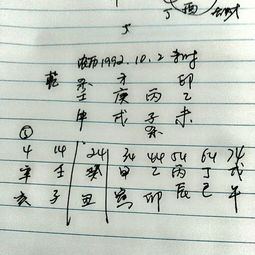 丁酉
1992.10.2
乾 杀 才 印
壬 庚 丙 乙
申 戌 子 未
癸
4 14 24 34 44 54 64 74
辛 壬 癸 甲 乙 丙 丁 戊
亥 子 丑 寅 卯 辰 巳 午